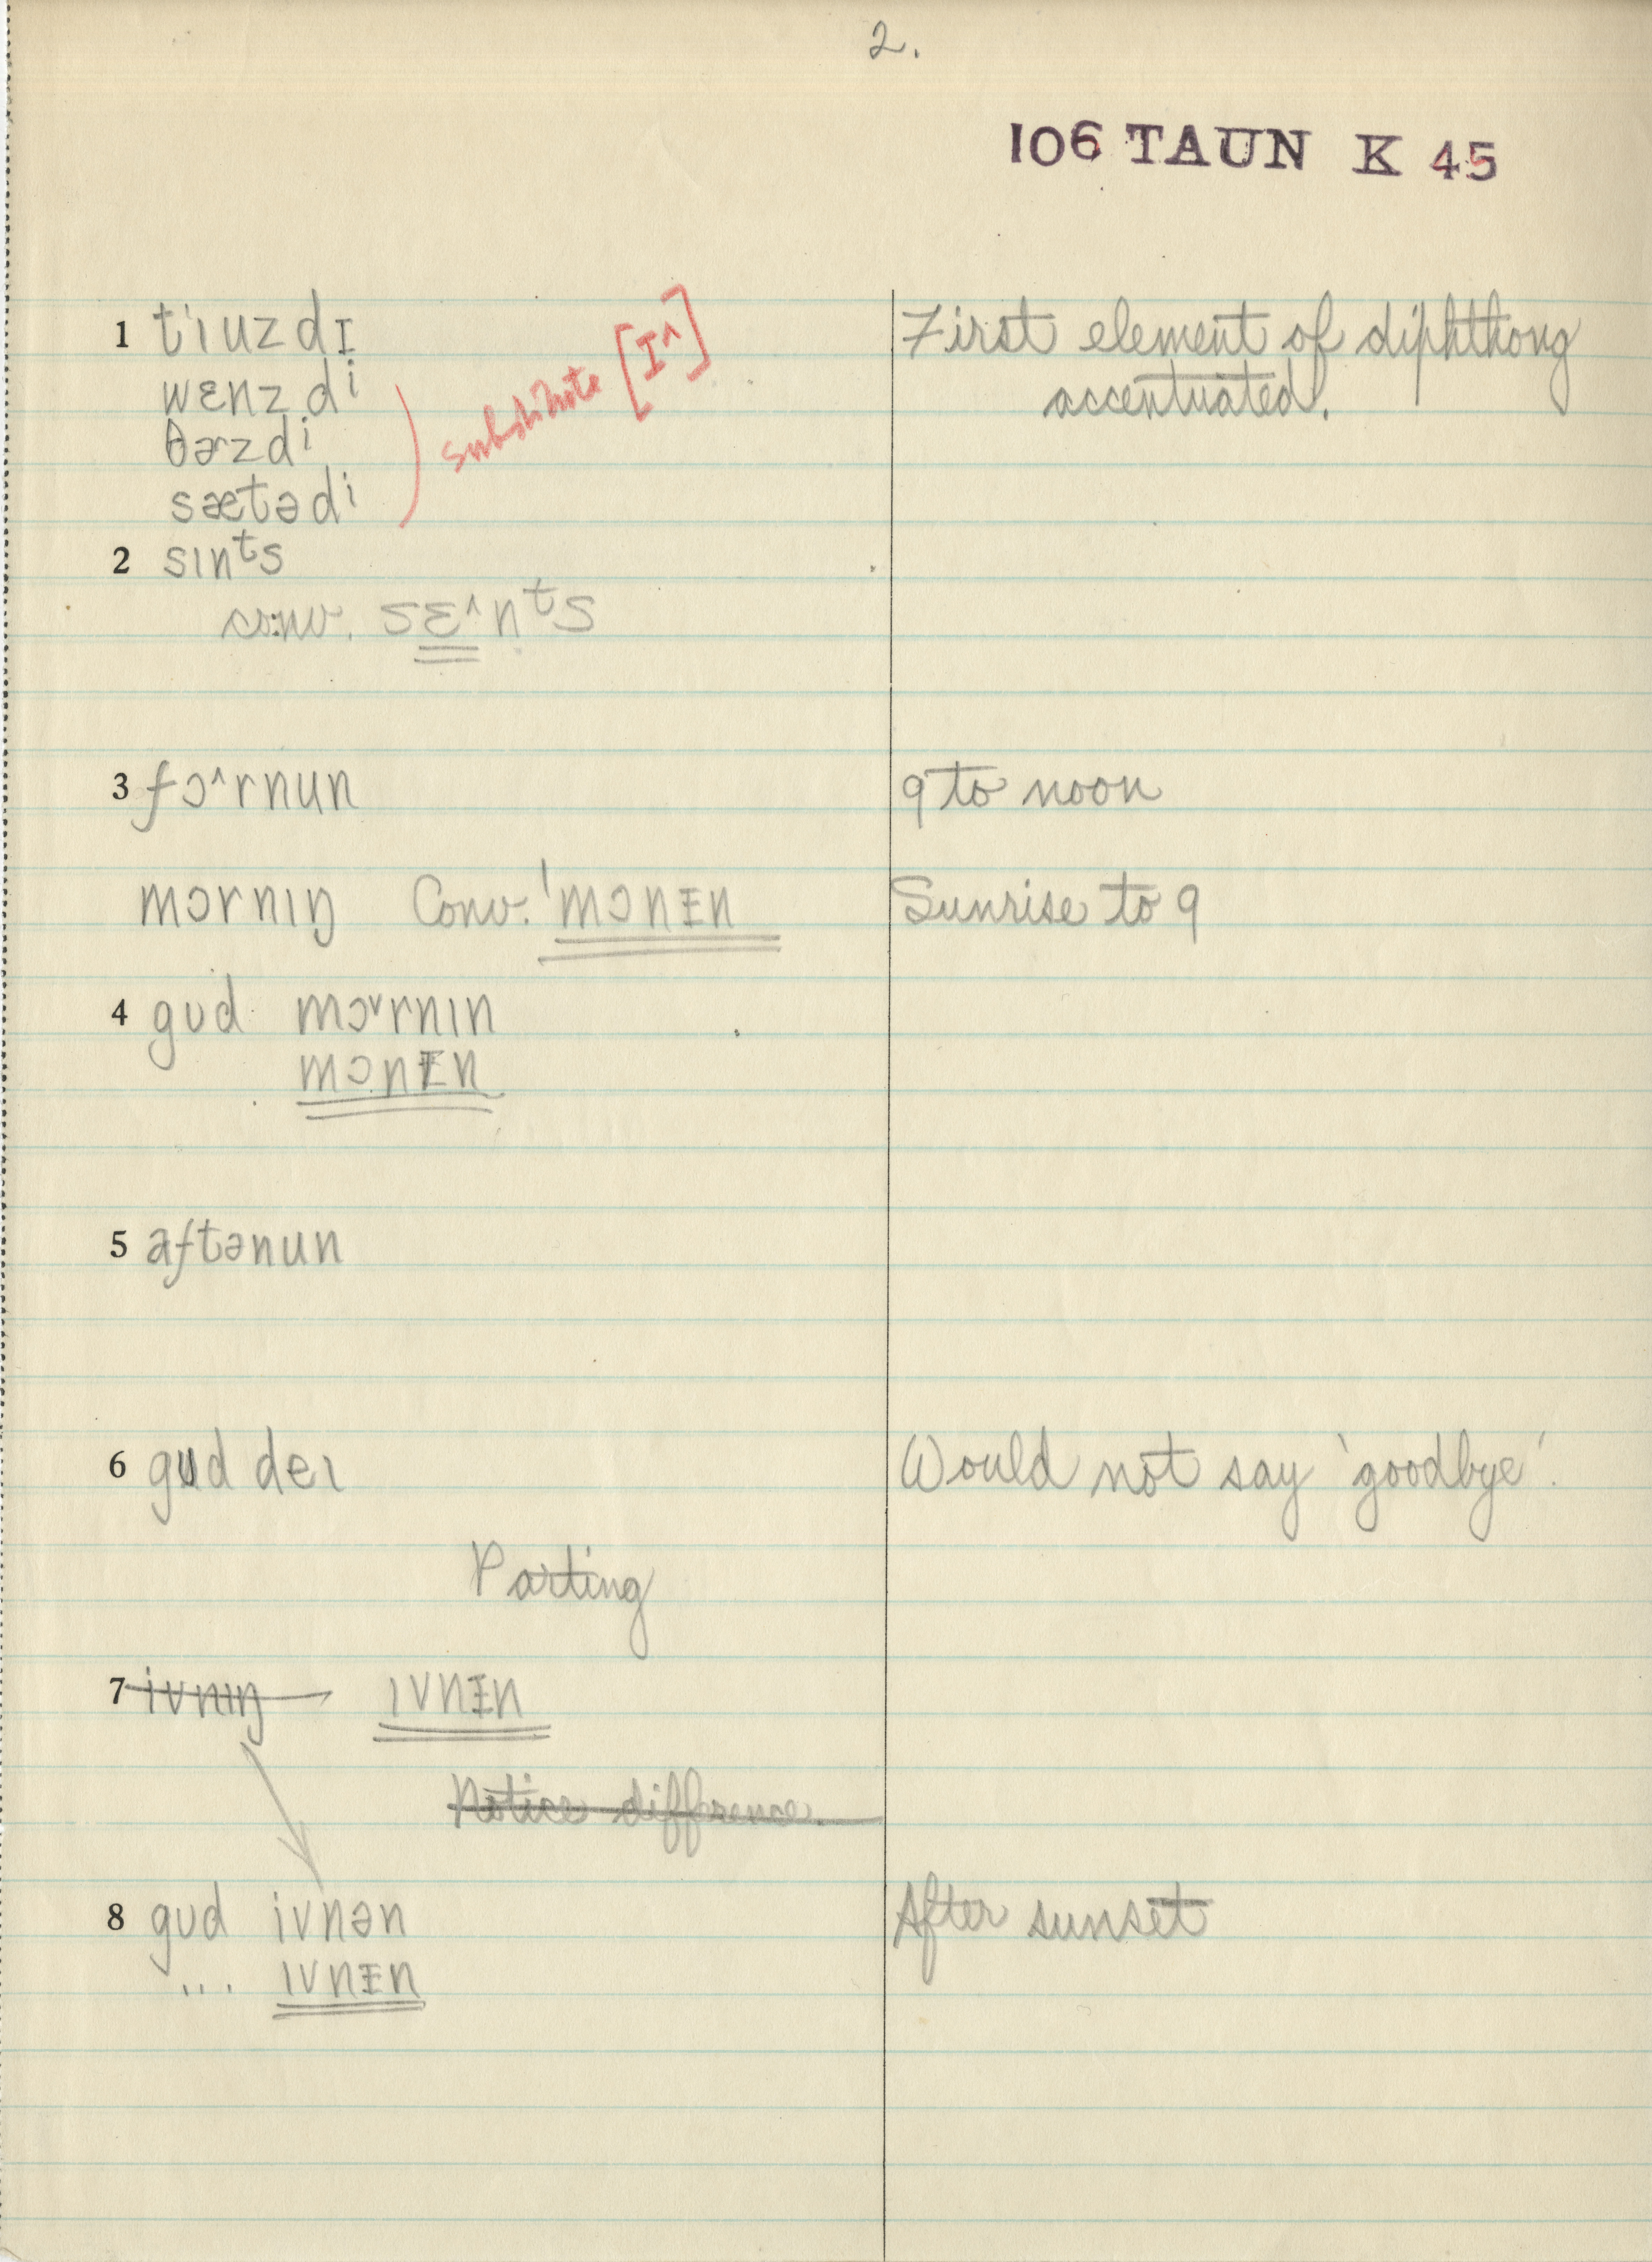 2.
106 TAUN K 45
1 tˈɪuzdɪ First element of diphthong
wɛnzdi accentuated.
θɚzdi substitute [ɪ^]
sætədi
2 sɪnᵗs
conv. sɛ^nᵗs
3 fɔ^rnun 9 to noon
mɔrnɪŋ Conv. ˈmɔnɪn Sunrise to 9
4 gʊd mɔ˅rnɪn
mɔnɪn
5 aftənun
6 gʊd deɪ Would not say 'goodbye'.
Parting
7 ivnɪŋ ɪvnɪn
Notice difference.
8 gʊd ivnən After sunset
... ɪvnɪn